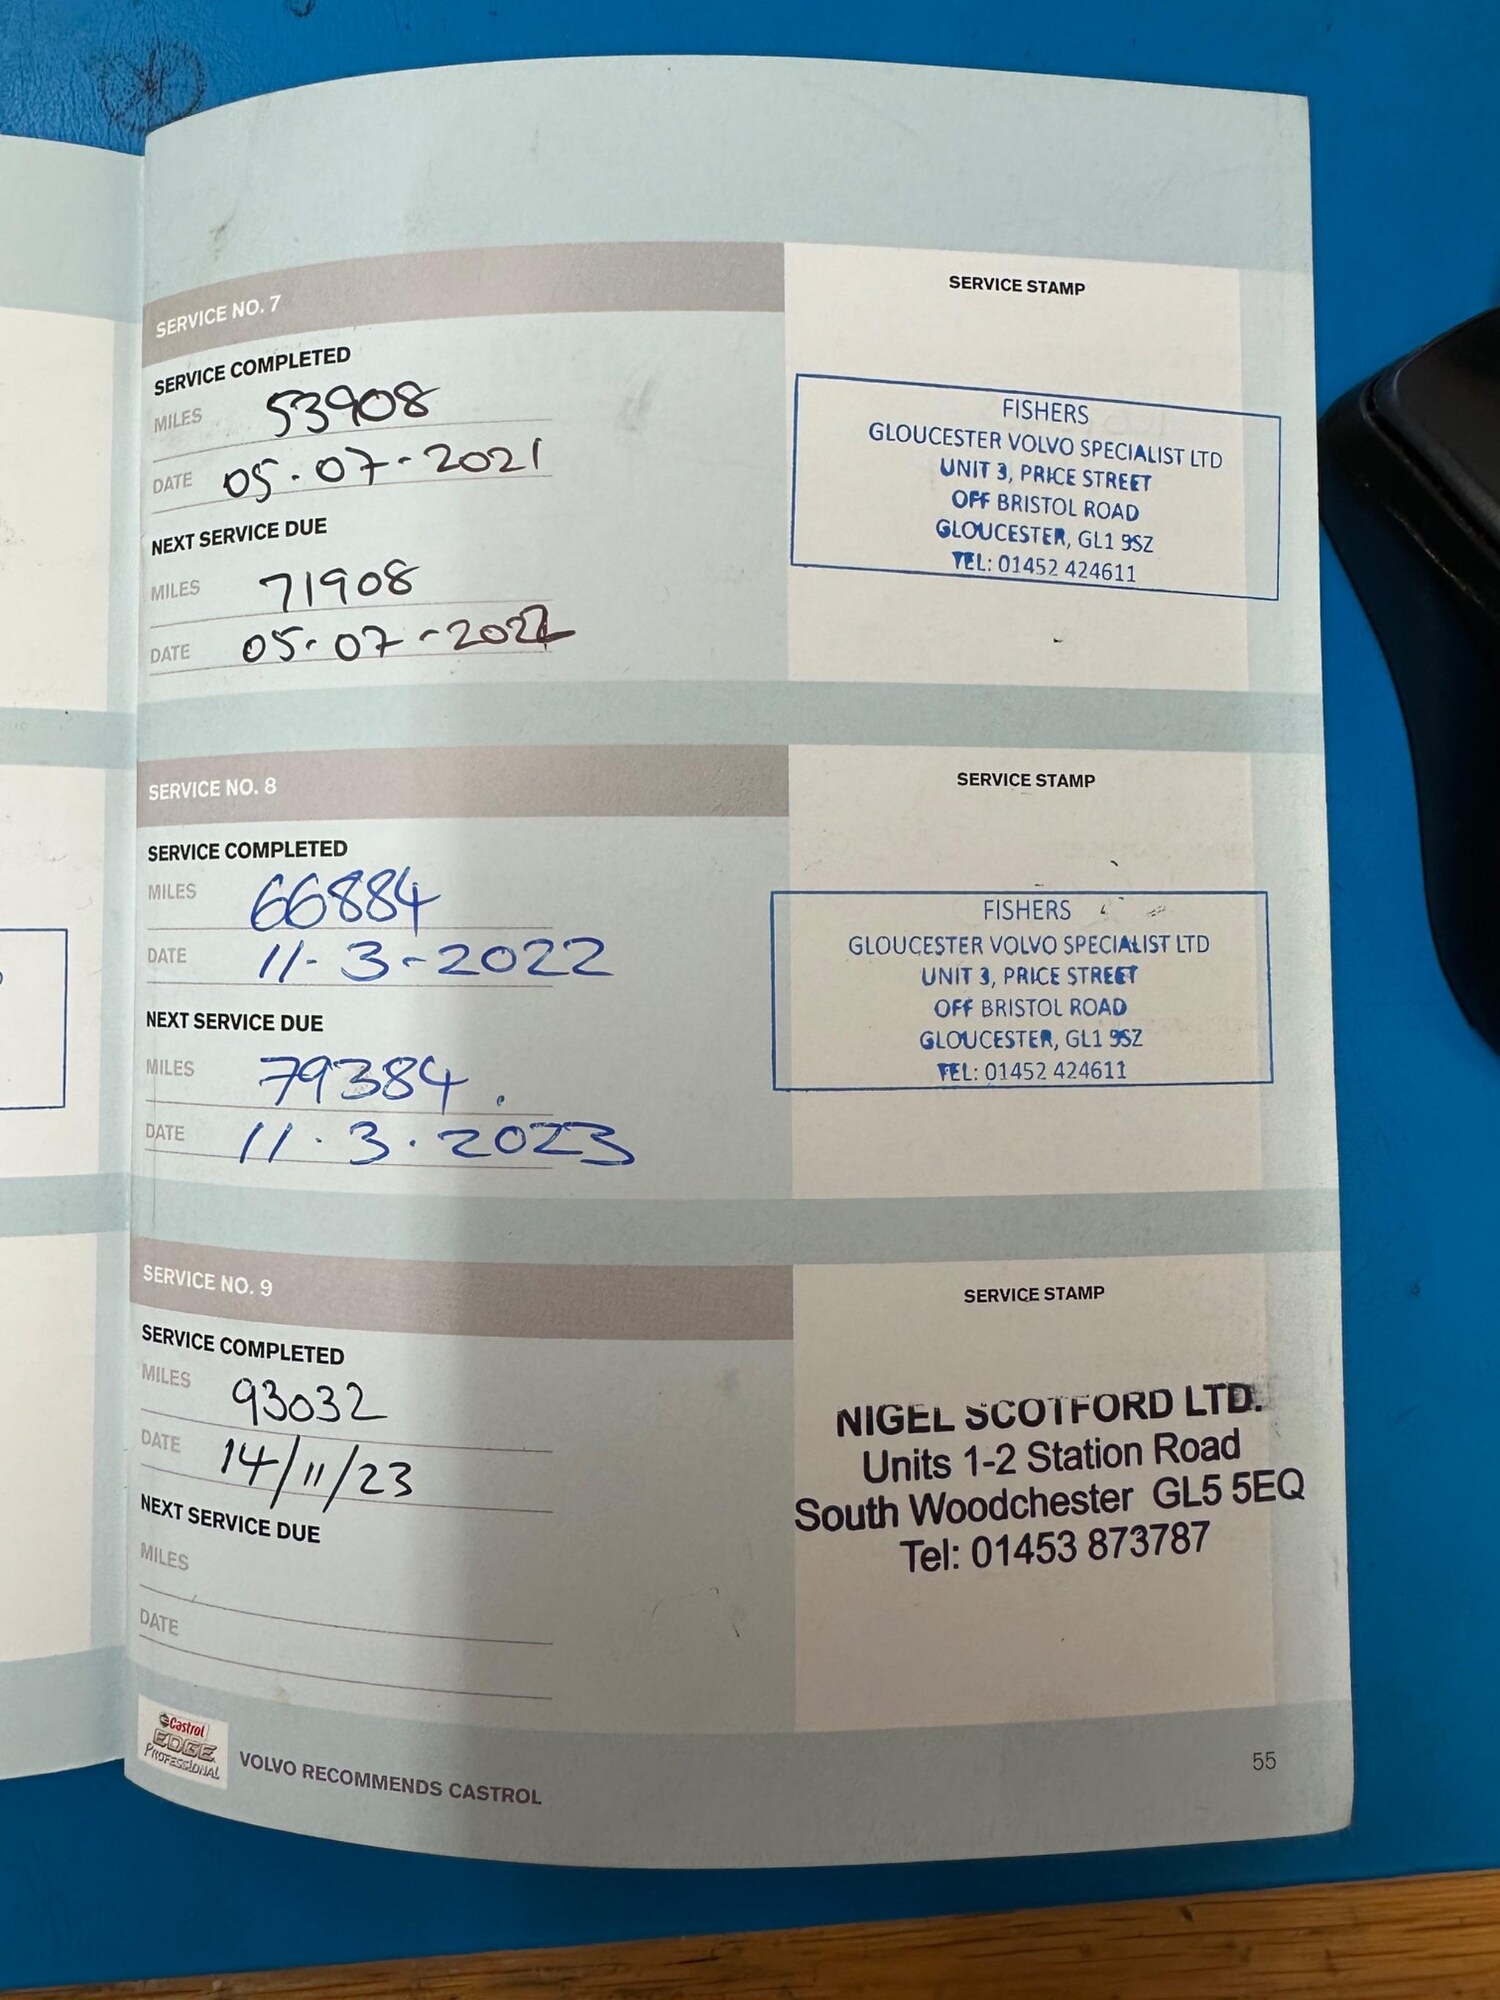 SERVICE NO. 7
SERVICE COMPLETED
MILES 53908
DATE 05.07-2021
NEXT SERVICE DUE
MILES 71908
DATE 05.07-2022
SERVICE STAMP
FISHERS
GLOUCESTER VOLVO SPECIALIST LTD
UNIT 3, PRICE STREET
OFF BRISTOL ROAD
GLOUCESTER, GL1 9SZ
TEL: 01452 424611
SERVICE NO. 8
SERVICE COMPLETED
MILES 66884
DATE 11-3-2022
NEXT SERVICE DUE
MILES 79384.
DATE 11.3.2023
SERVICE STAMP
FISHERS
GLOUCESTER VOLVO SPECIALIST LTD
UNIT 3, PRICE STREET
OFF BRISTOL ROAD
GLOUCESTER, GL1 9SZ
TEL: 01452 424611
SERVICE NO. 9
SERVICE COMPLETED
MILES 93032
DATE 14/11/23
NEXT SERVICE DUE
MILES
DATE
SERVICE STAMP
NIGEL SCOTFORD LTD.
Units 1-2 Station Road
South Woodchester GL5 5EQ
Tel: 01453 873787
Castrol
EDGE
PROFESSIONAL
VOLVO RECOMMENDS CASTROL
55